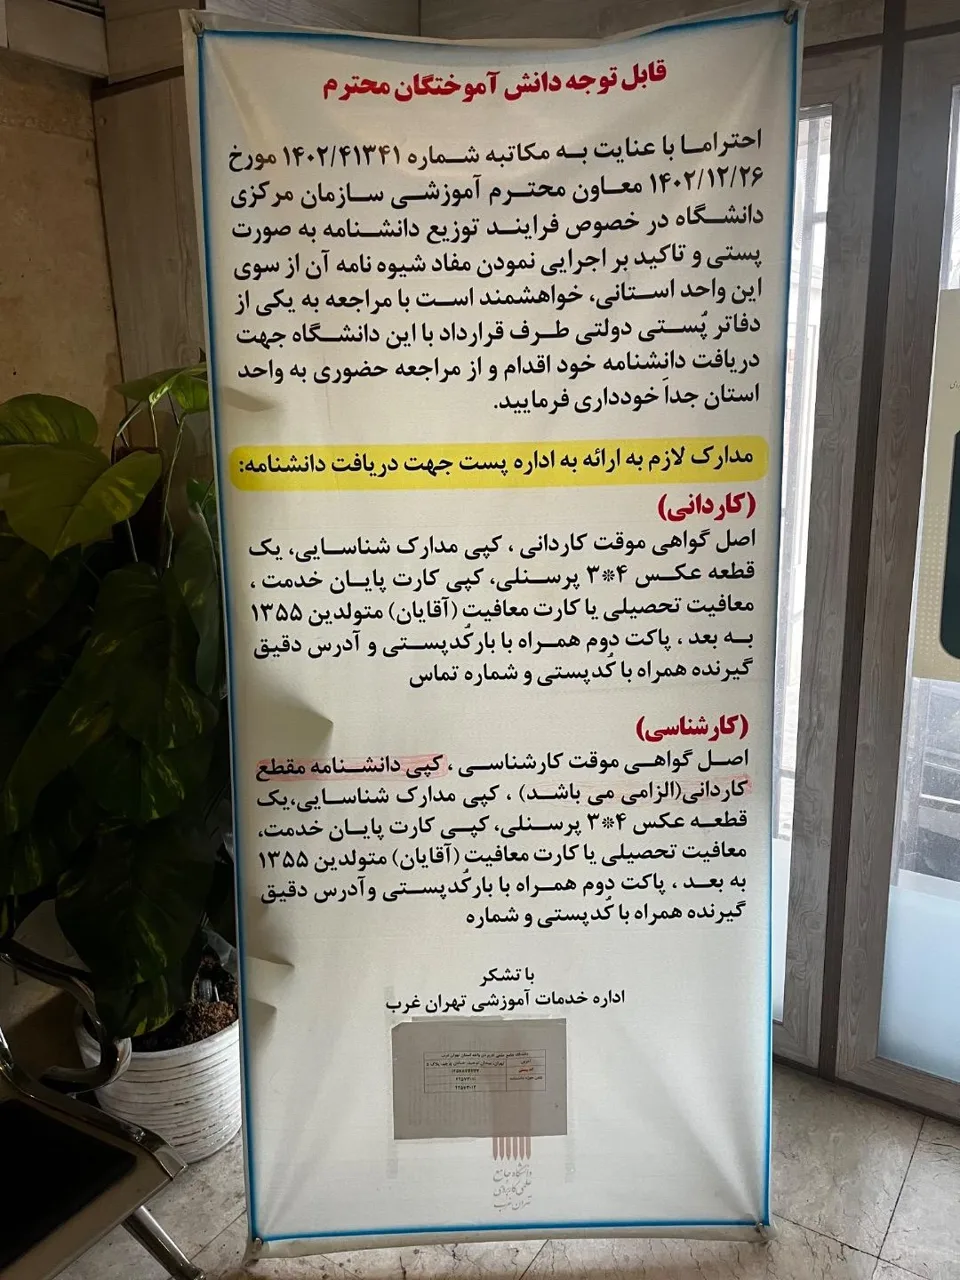 قابل توجه دانش آموختگان محترم
احتراما با عنایت به مکاتبه شماره ۱۴۰۲/۴۱۳۴۱ مورخ
۱۴۰۲/۱۲/۲۶ معاون محترم آموزشی سازمان مرکزی
دانشگاه در خصوص فرایند توزیع دانشنامه به صورت
پستی و تاکید بر اجرایی نمودن مفاد شیوه نامه آن از سوی
این واحد استانی، خواهشمند است با مراجعه به یکی از
دفاتر پُستی دولتی طرف قرارداد با این دانشگاه جهت
دریافت دانشنامه خود اقدام و از مراجعه حضوری به واحد
استان جداً خودداری فرمایید.
مدارک لازم به ارائه به اداره پست جهت دریافت دانشنامه:
(کاردانی)
اصل گواهی موقت کاردانی ، کپی مدارک شناسایی، یک
قطعه عکس ۴*۳ پرسنلی، کپی کارت پایان خدمت ،
معافیت تحصیلی یا کارت معافیت (آقایان) متولدین ۱۳۵۵
به بعد ، پاکت دوم همراه با بارکُدپستی و آدرس دقیق
گیرنده همراه با کُدپستی و شماره تماس
(کارشناسی)
اصل گواهی موقت کارشناسی ، کپی دانشنامه مقطع
کاردانی(الزامی می باشد) ، کپی مدارک شناسایی،یک
قطعه عکس ۴*۳ پرسنلی، کپی کارت پایان خدمت،
معافیت تحصیلی یا کارت معافیت (آقایان) متولدین ۱۳۵۵
به بعد ، پاکت دوم همراه با بارکُدپستی وآدرس دقیق
گیرنده همراه با کُدپستی و شماره
با تشکر
اداره خدمات آموزشی تهران غرب
آدرس
کدپستی
دانشگاه جامع
علمی کاربردی
تهران غرب